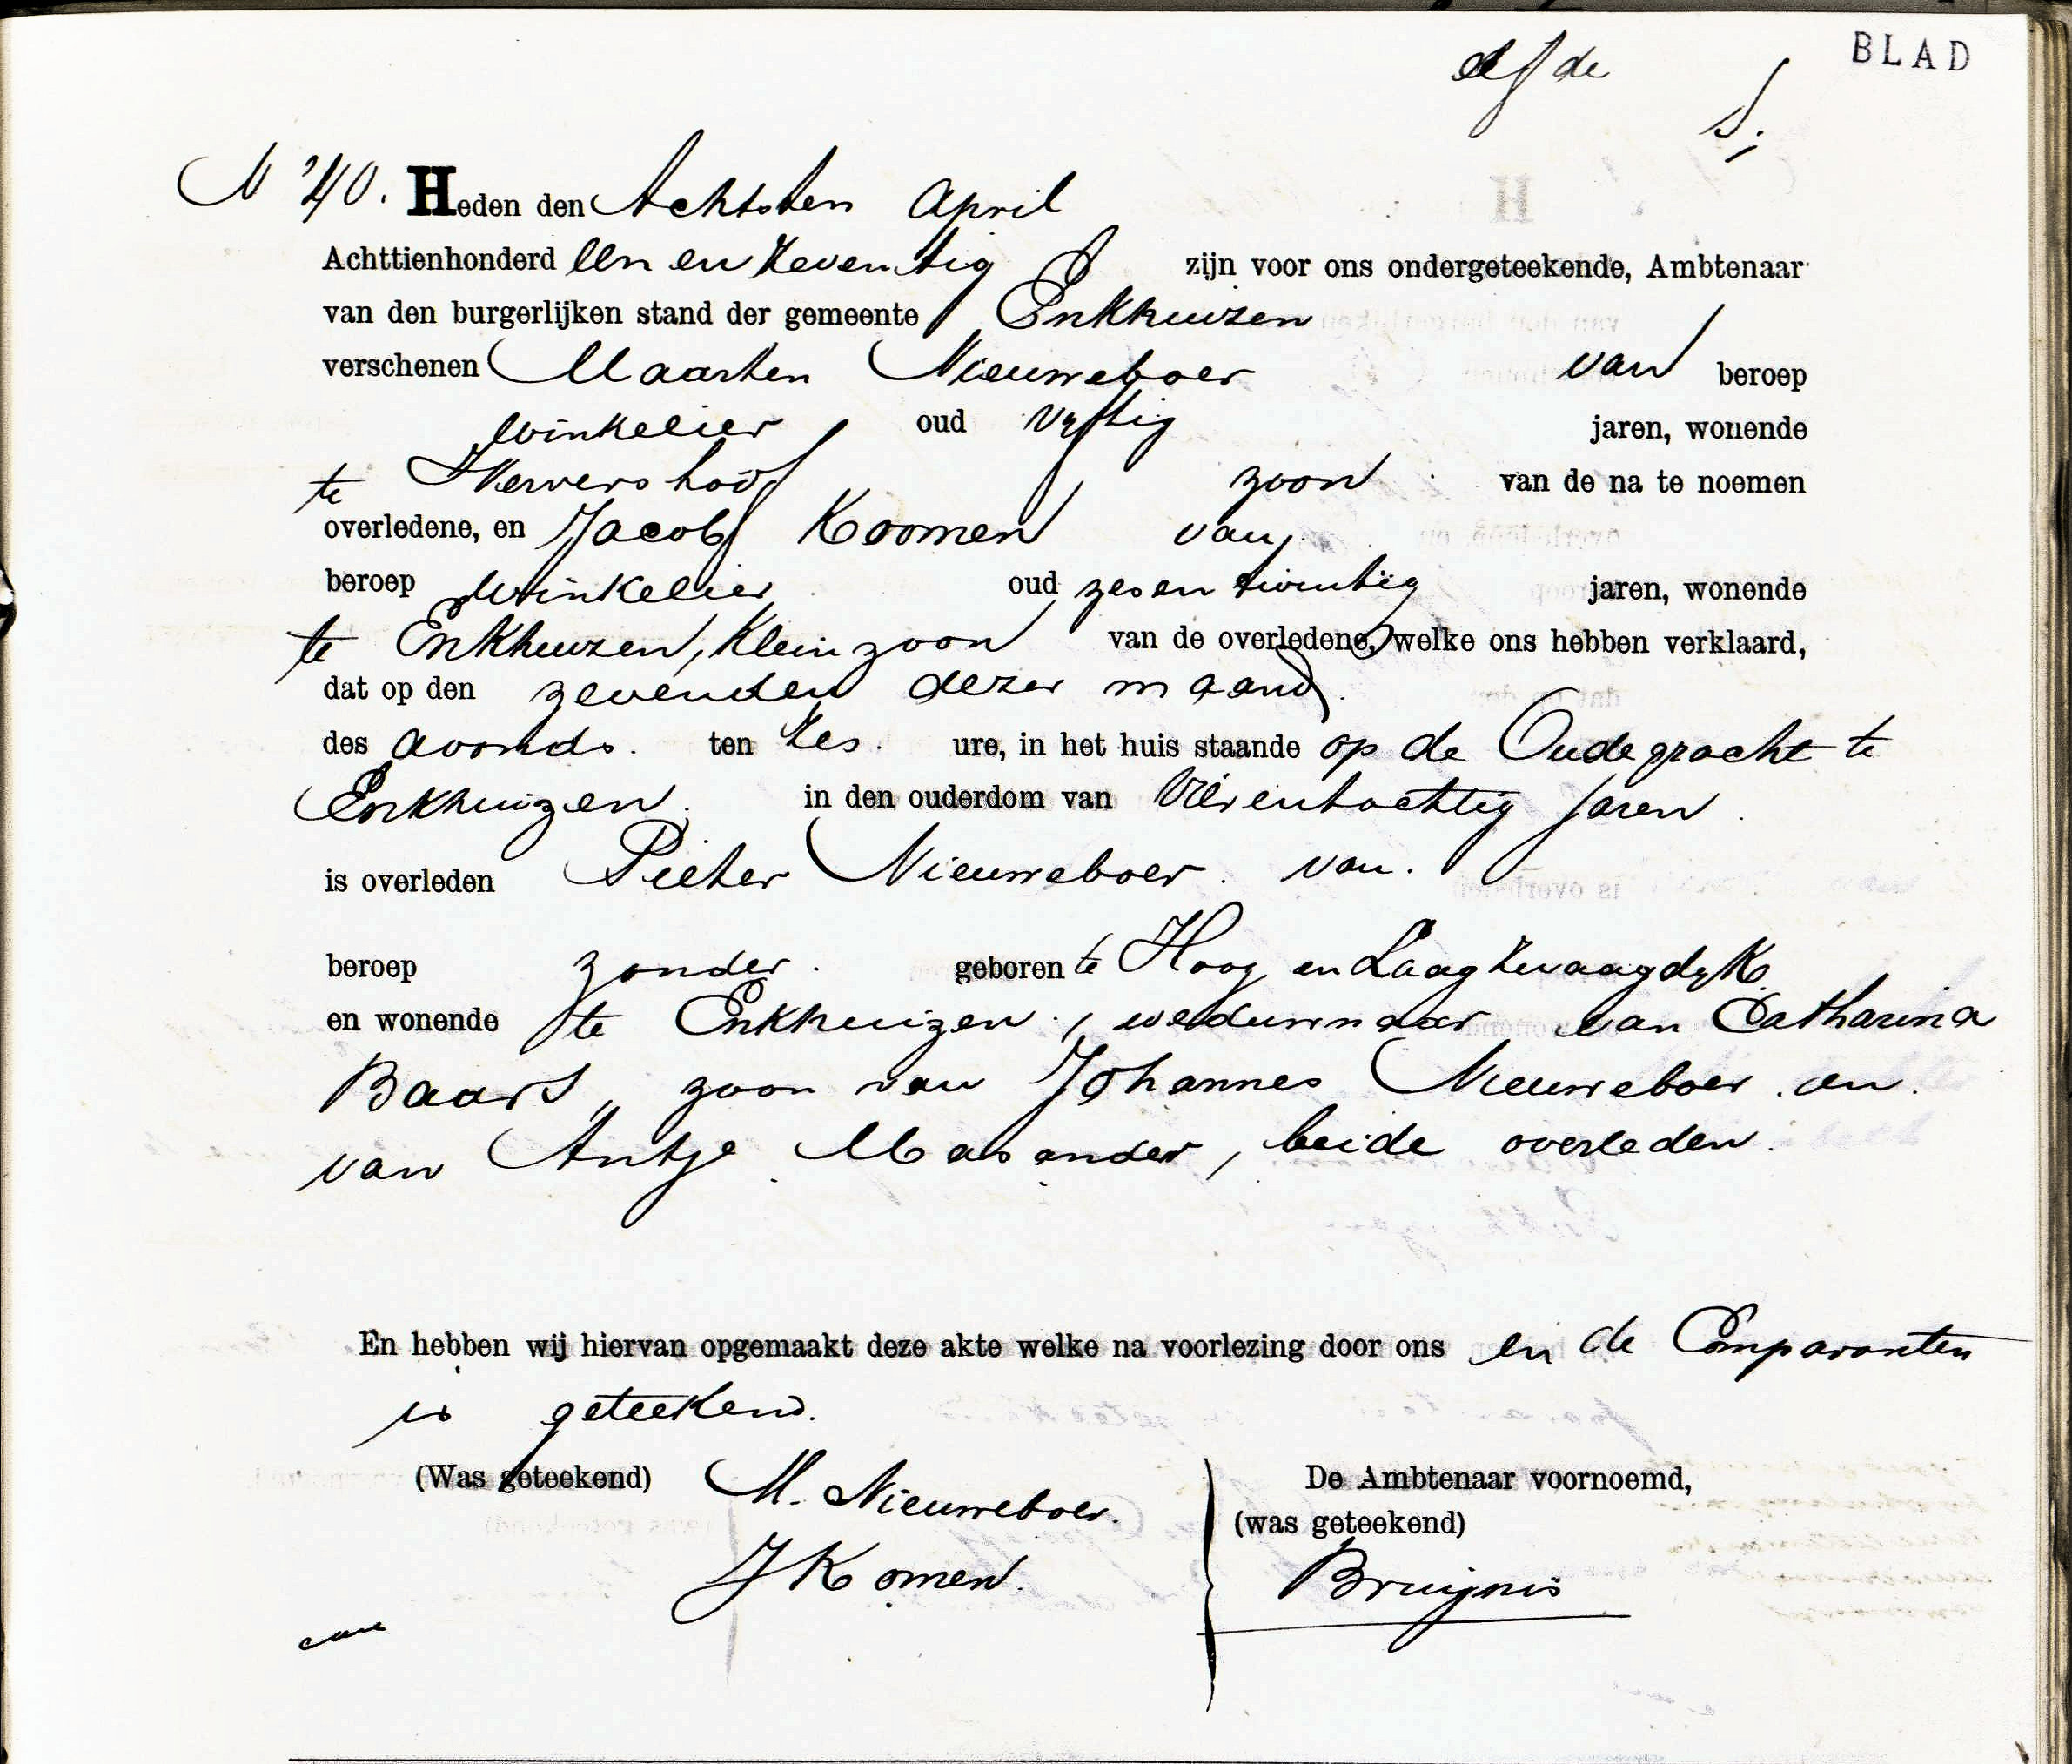 elfde BLAD
N 40. Heden den Achtsten April
Achttienhonderd Een en Zeventig zijn voor ons ondergeteekende, Ambtenaar
van den burgerlijken stand der gemeente Enkhuizen
verschenen Maarten Nieuweboer van beroep
winkelier oud vyftig jaren, wonende
te Wervershoof zoon van de na te noemen
overledene, en Jacob Koomen van
beroep winkelier oud zesentwintig jaren, wonende
te Enkhuizen, Kleinzoon van de overledene, welke ons hebben verklaard,
dat op den zevenden dezer maand
des avonds. ten Zes. ure, in het huis staande op de Oudegracht te
Enkhuizen. in den ouderdom van Vierentachtig jaren.
is overleden Pieter Nieuweboer. van.
beroep zonder. geboren te Hoog en Laag Zwaagdyk
en wonende te Enkhuizen, weduwnaar van Catharina
Baars, zoon van Johannes Nieuweboer. en.
van Antje Masander, beide overleden.
En hebben wij hiervan opgemaakt deze akte welke na voorlezing door ons en de Comparanten
is geteekend.
(Was geteekend) M. Nieuweboer. De Ambtenaar voornoemd,
(was geteekend)
J Komen. Bruijnis